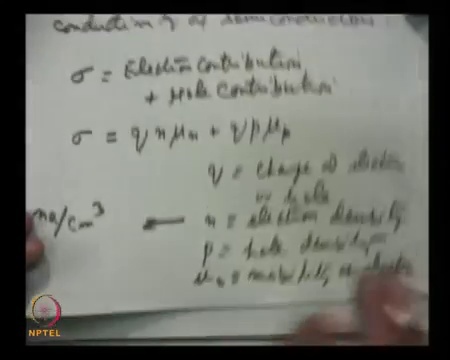 conduction of semiconductors
σ = Electron contribution
+ Hole contribution
σ = q n μn + q p μp
q = charge of electron
or hole
no/cm³ — n = electron density
p = hole density
μn = mobility of electron
NPTEL